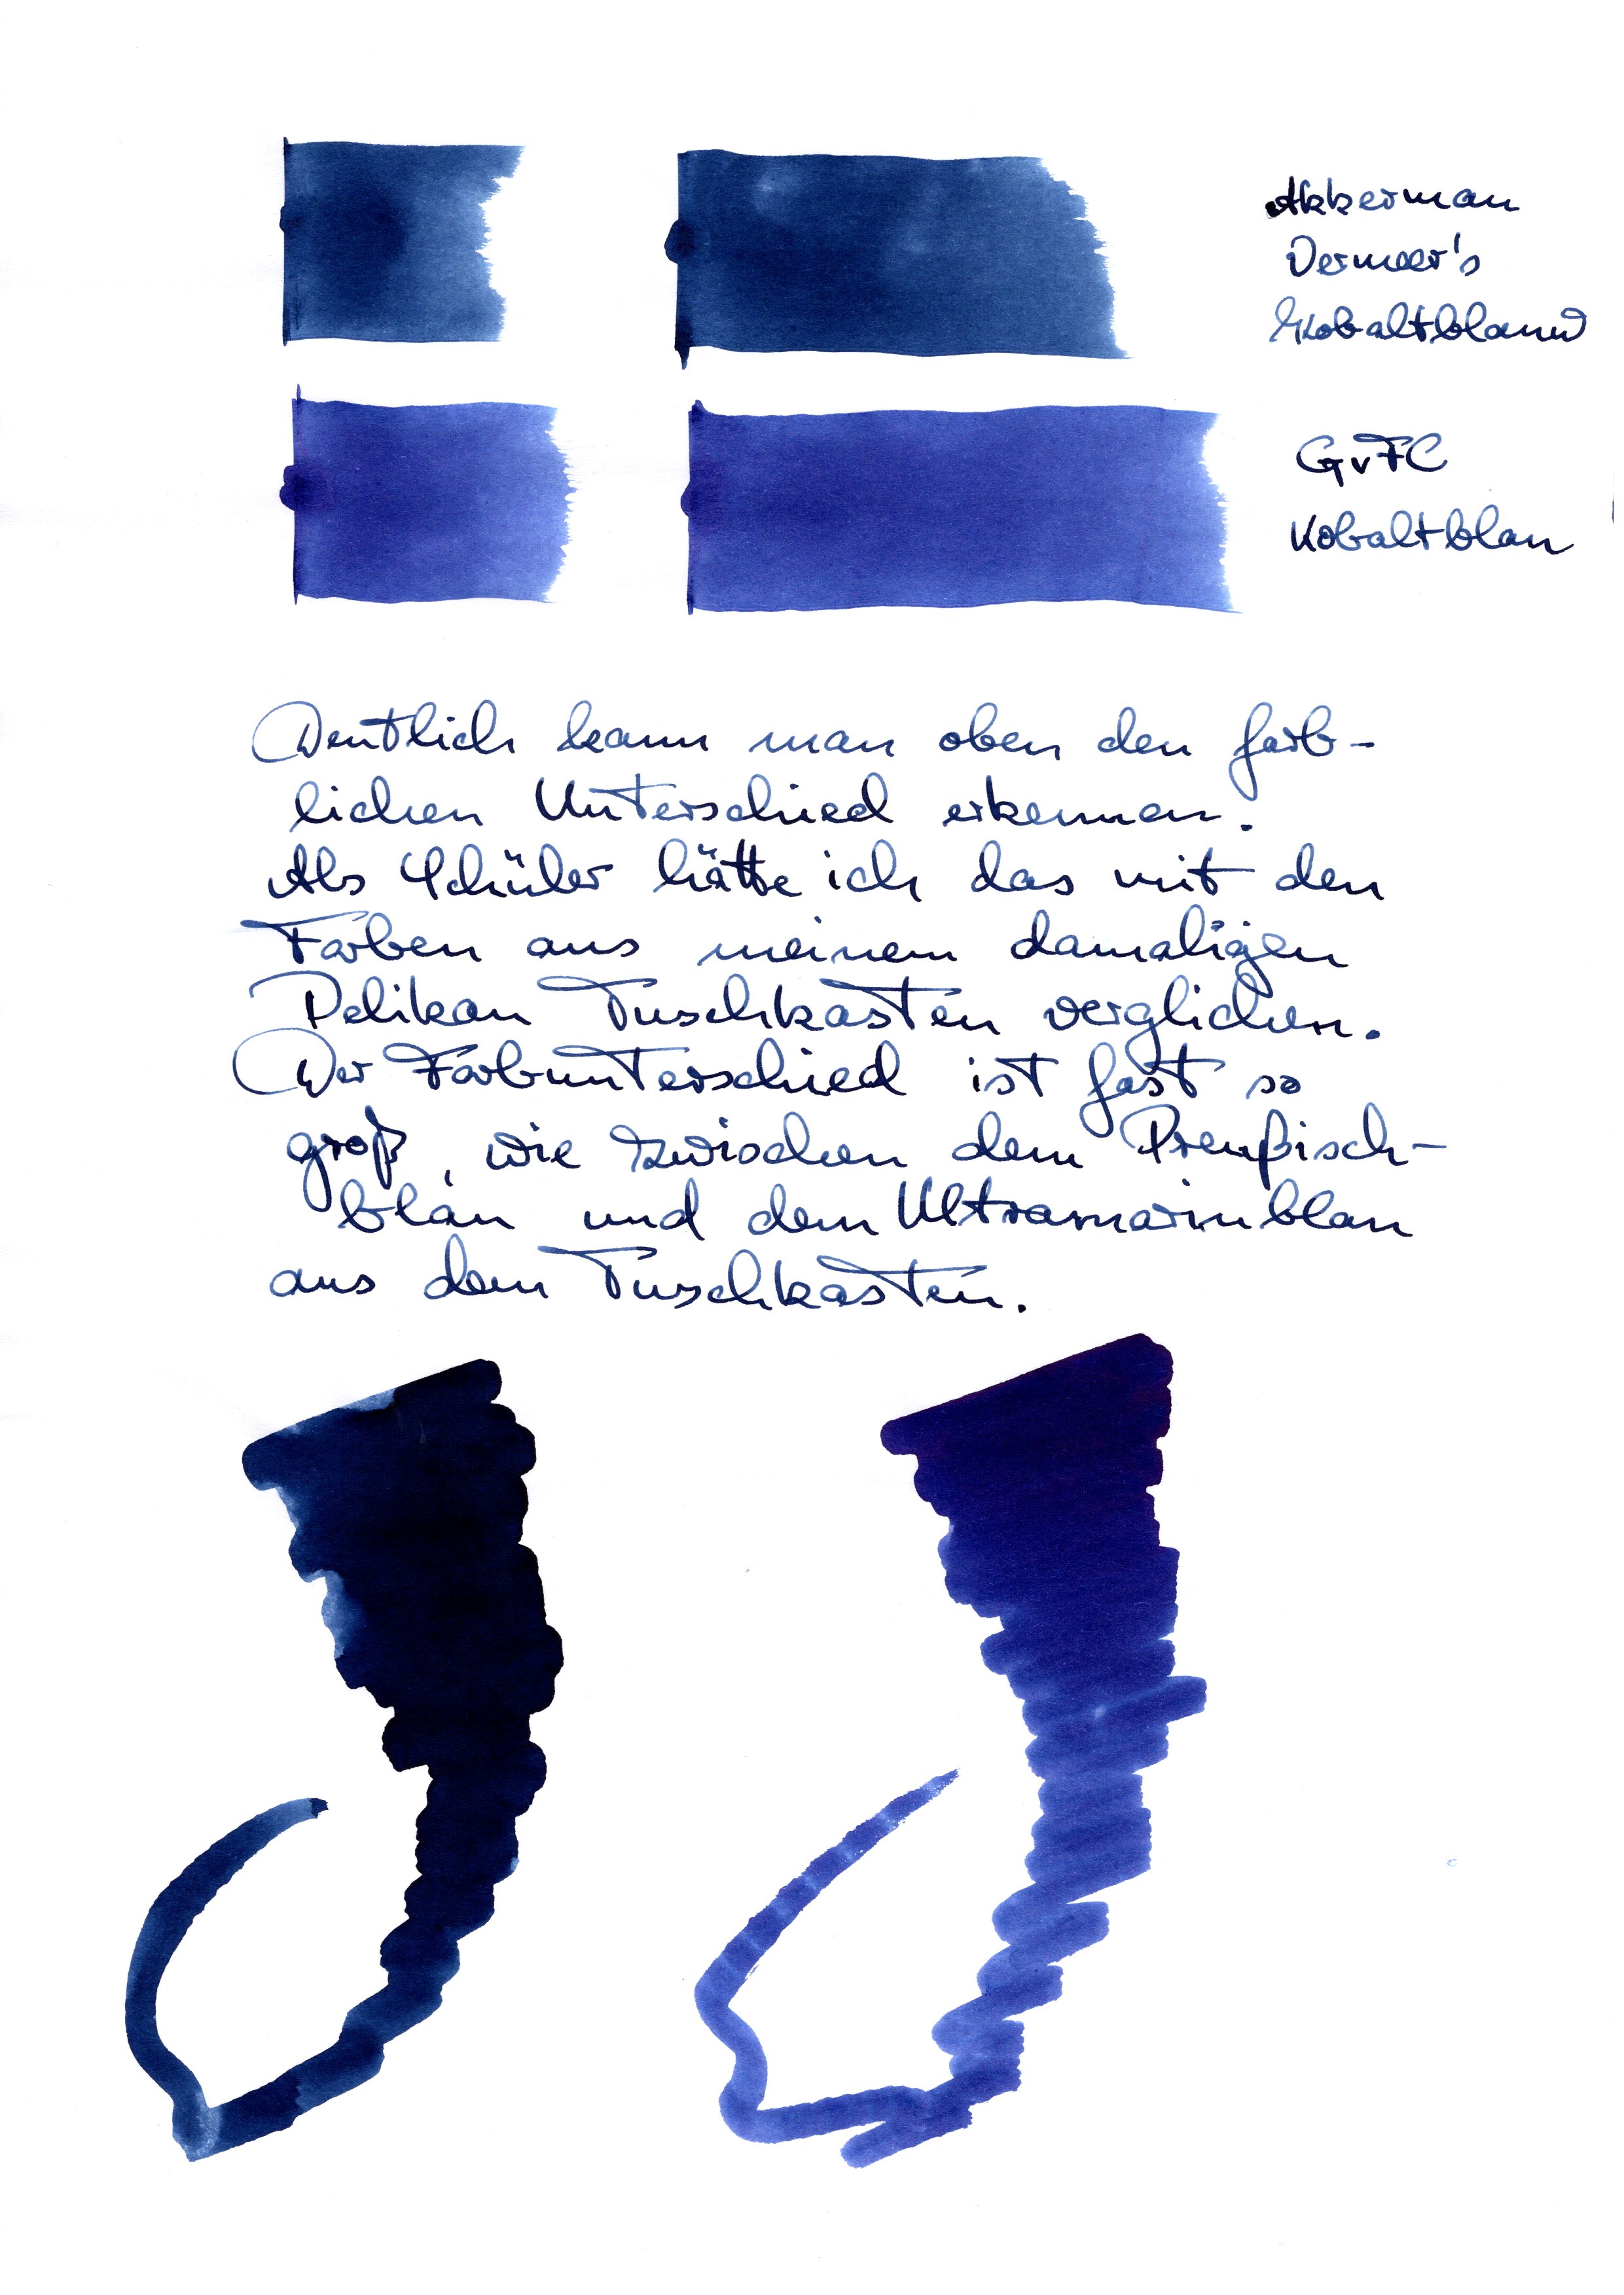 Akkerman
Vermeer's
Kobaltblauw
GvFC
Kobaltblau
Deutlich kann man oben den farb-
lichen Unterschied erkennen.
Als Schüler hätte ich das mit den
Farben aus meinem damaligen
Pelikan Tuschkasten verglichen.
Der Farbunterschied ist fast so
groß, wie zwischen dem Preußisch-
blau und dem Ultramarinblau
aus dem Tuschkasten.